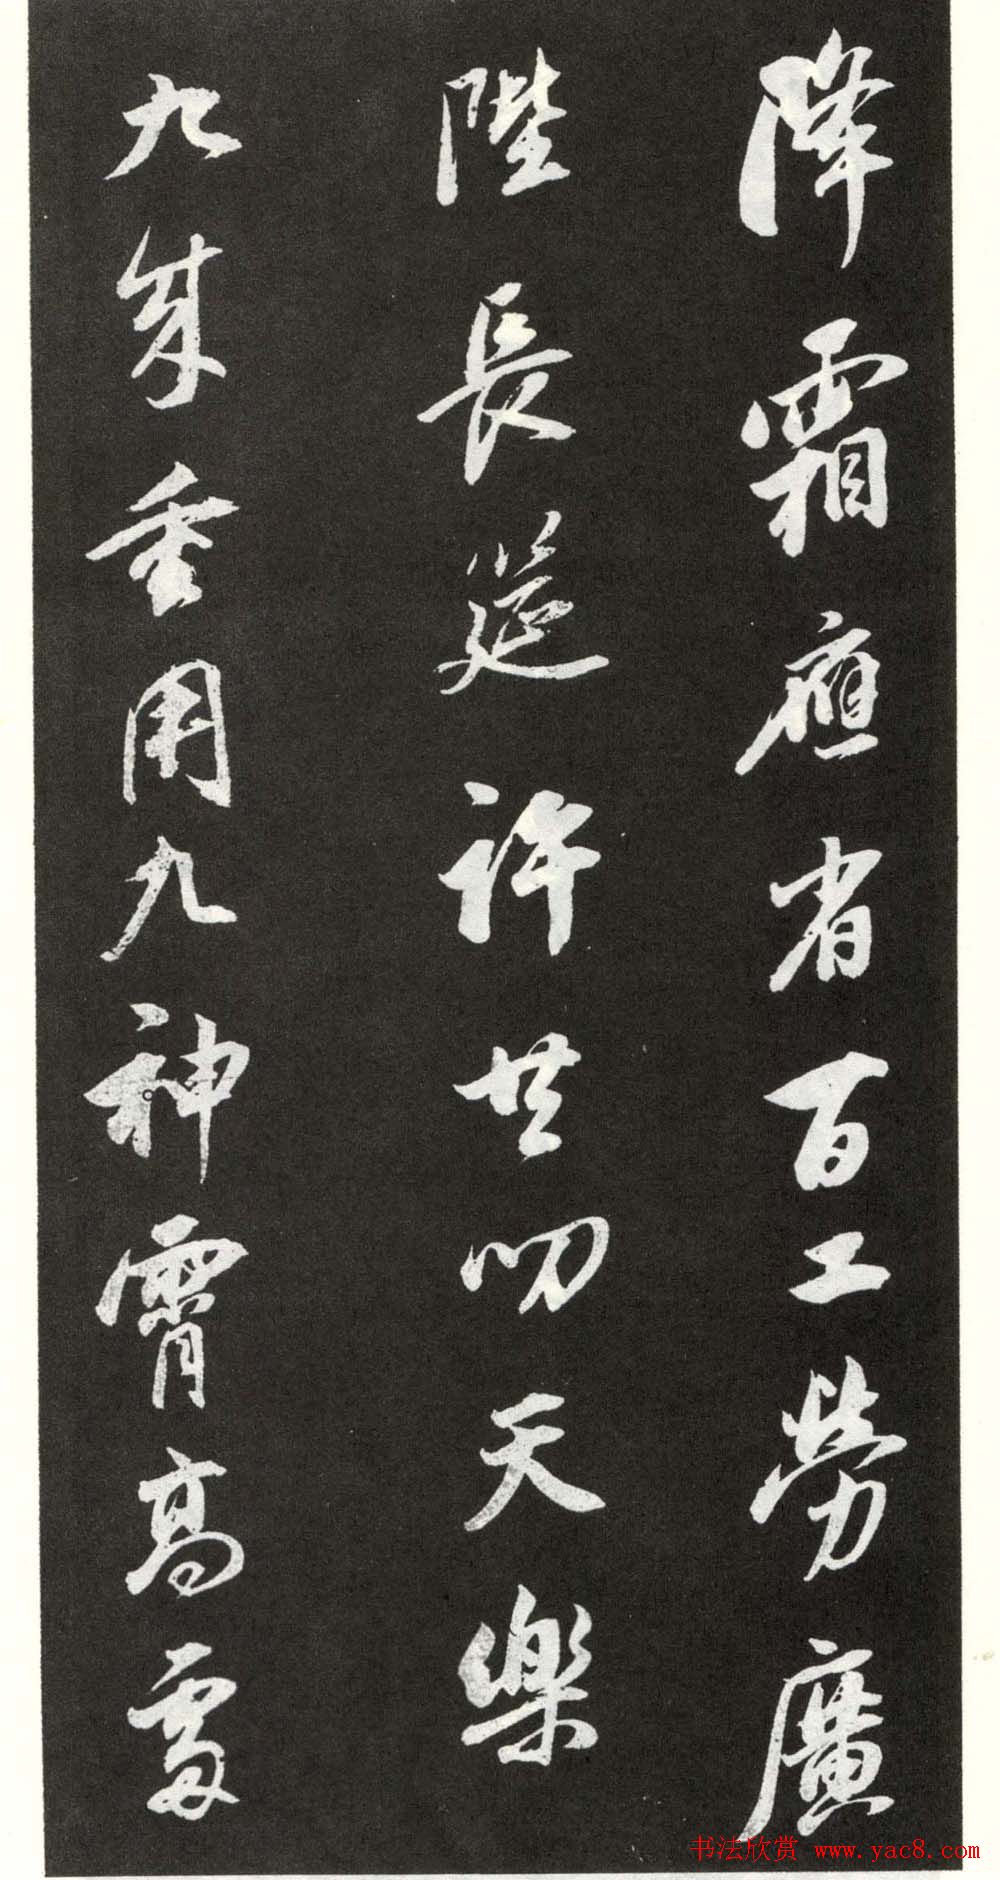 降霜應省百工勞廣
陛長筵許共叨天樂
九成重用九神霄高處
书法欣赏 www.yac8.com